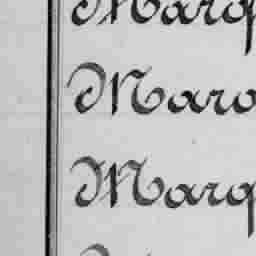 Marq
Maro
Marq